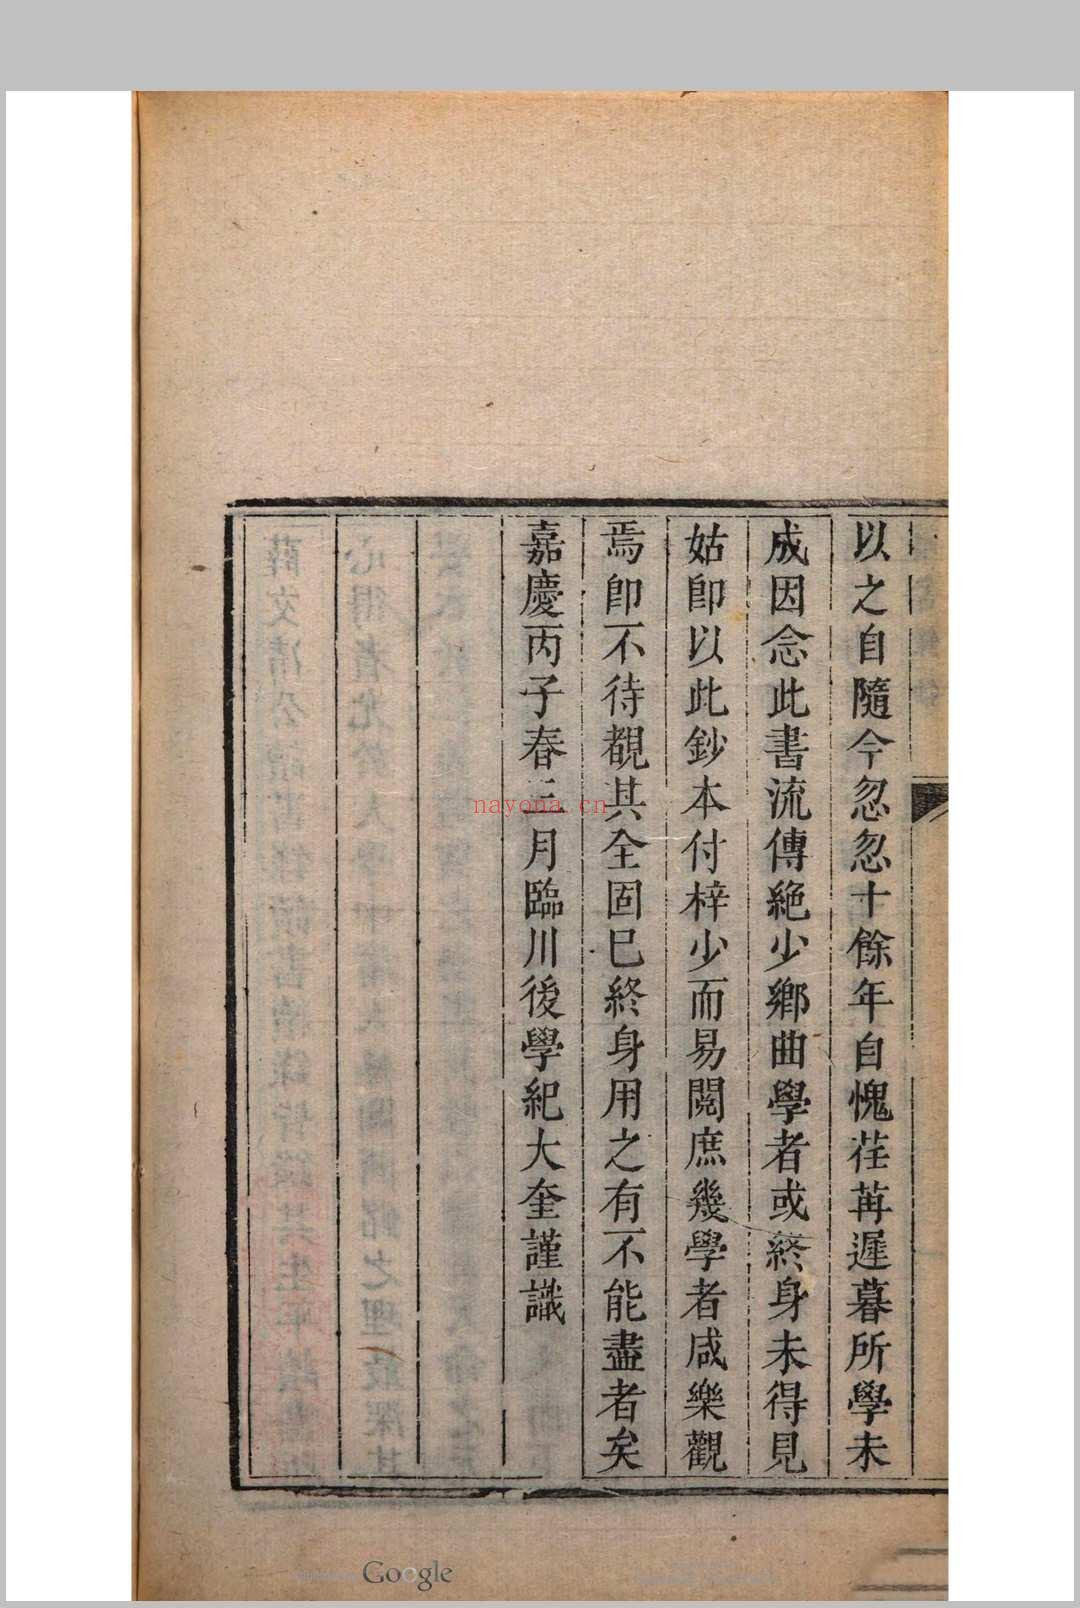 以之自隨今忽忽十餘年自愧荏苒遲暮所學未
成因念此書流傳絶少鄉曲學者或終身未得見
姑卽以此鈔本付梓少而易閱庶幾學者咸樂觀
焉卽不待覩其全固已終身用之有不能盡者矣
嘉慶丙子春三月臨川後學紀大奎謹識
nayona.cn
Google